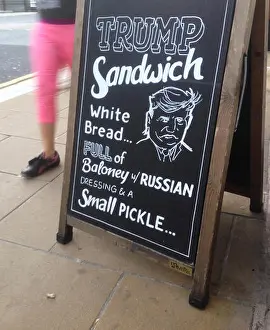 TRUMP
Sandwich
White
Bread...
FULL of
Baloney w/ RUSSIAN
DRESSING & A
Small PICKLE...